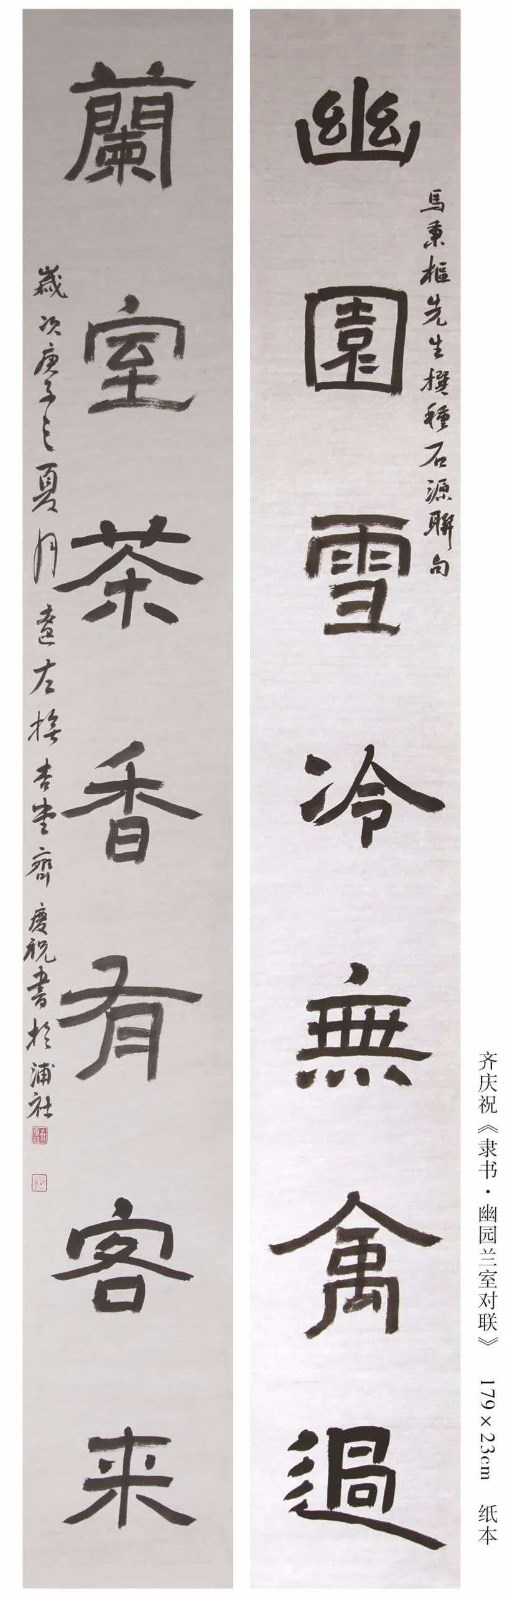 幽園雪冷無禽過
馬秉樞先生撰種石源聯句
蘭室茶香有客來
歲次庚子之夏月
齊慶祝書於浦社
齐庆祝《隶书·幽园兰室对联》 179×23cm 纸本